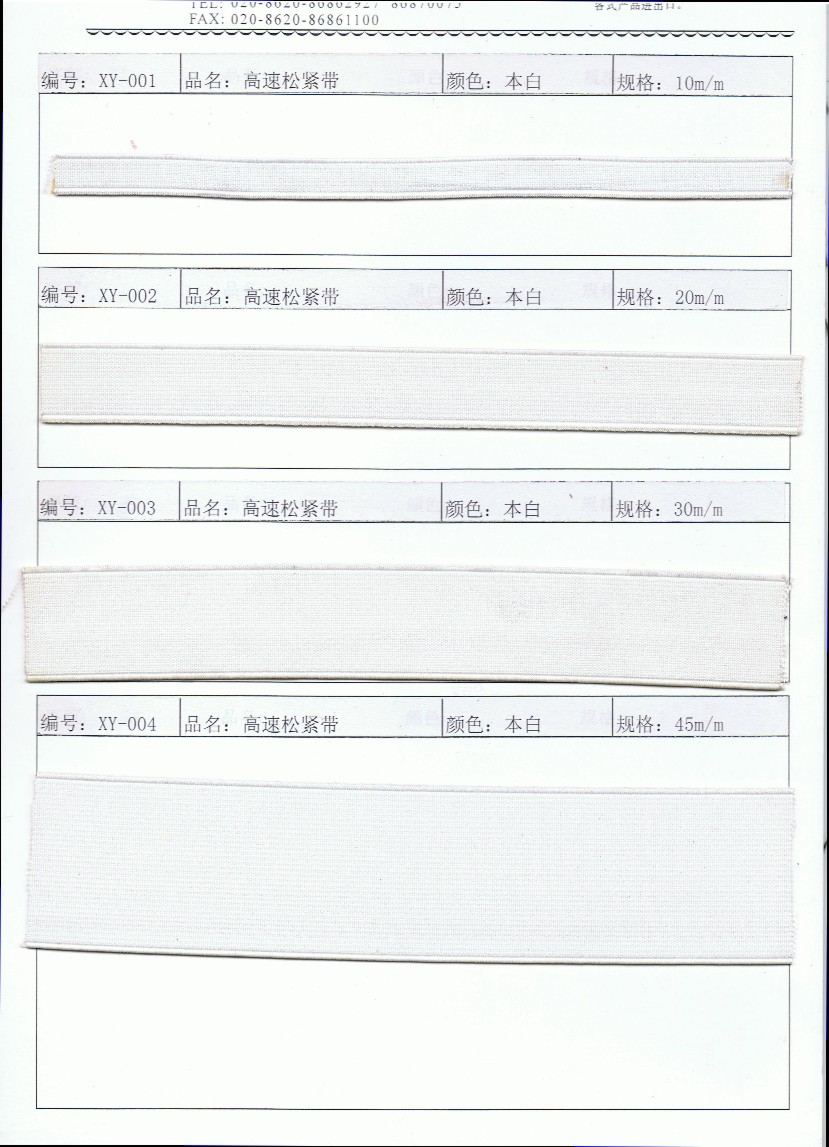 FAX: 020-8620-86861100
各式产品进出口。
编号: XY-001 品名: 高速松紧带 颜色: 本白 规格: 10m/m
编号: XY-002 品名: 高速松紧带 颜色: 本白 规格: 20m/m
编号: XY-003 品名: 高速松紧带 颜色: 本白 规格: 30m/m
编号: XY-004 品名: 高速松紧带 颜色: 本白 规格: 45m/m